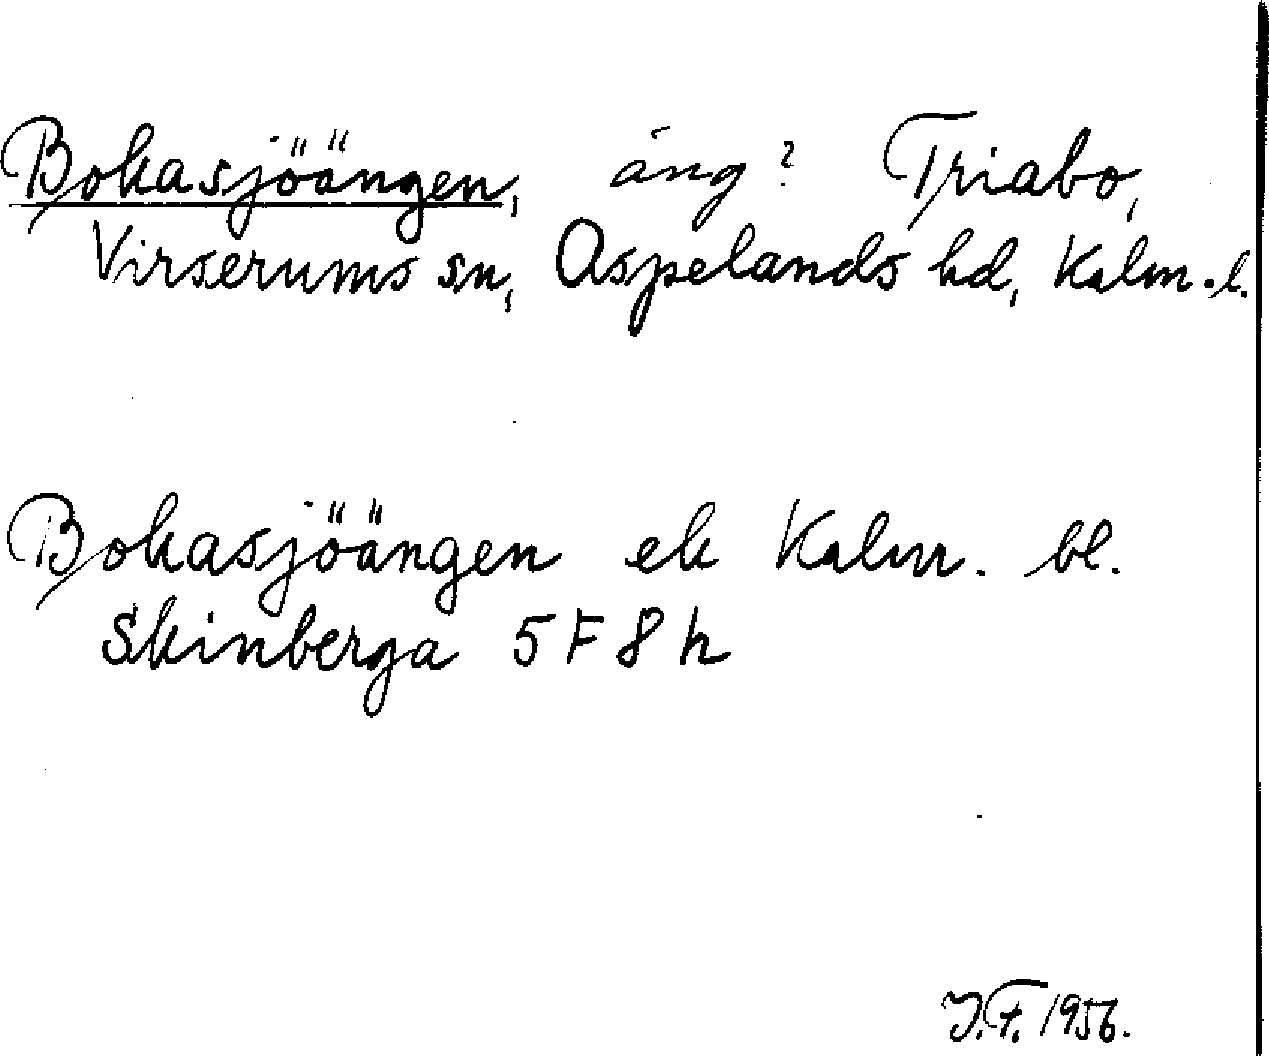 Bokasjöängen, äng? Triabo,
Virserums sn, Aspelands hd, Kalm. l.
Bokasjöängen ek Kalm. bl.
Skinberga 5 F 8 h
J.F. 1956.